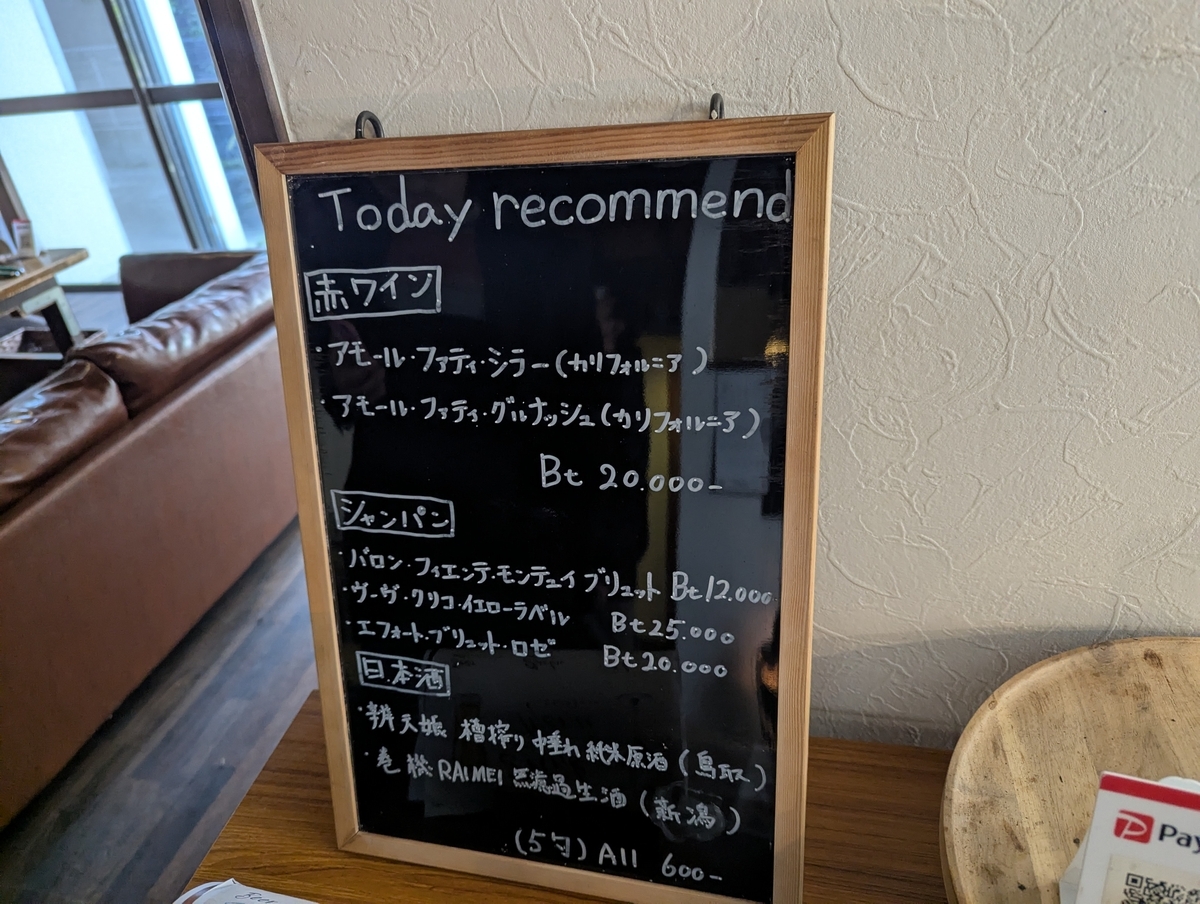 Today recommend
赤ワイン
・アモール・ファティ・シラー(カリフォルニア)
・アモール・ファティ・グルナッシュ(カリフォルニア)
Bt 20.000-
シャンパン
・バロン・フィエンテ・モンテュイ ブリュット Bt 12.000
・ヴーヴ・クリコ・イエローラベル Bt 25.000
・エフォート・ブリュット・ロゼ Bt 20.000
日本酒
・辨天娘 槽搾り 中垂れ 純米原酒(鳥取)
・巻機 RAIMEI 無濾過生酒(新潟)
(5勺) All 600-
Beer
Pay